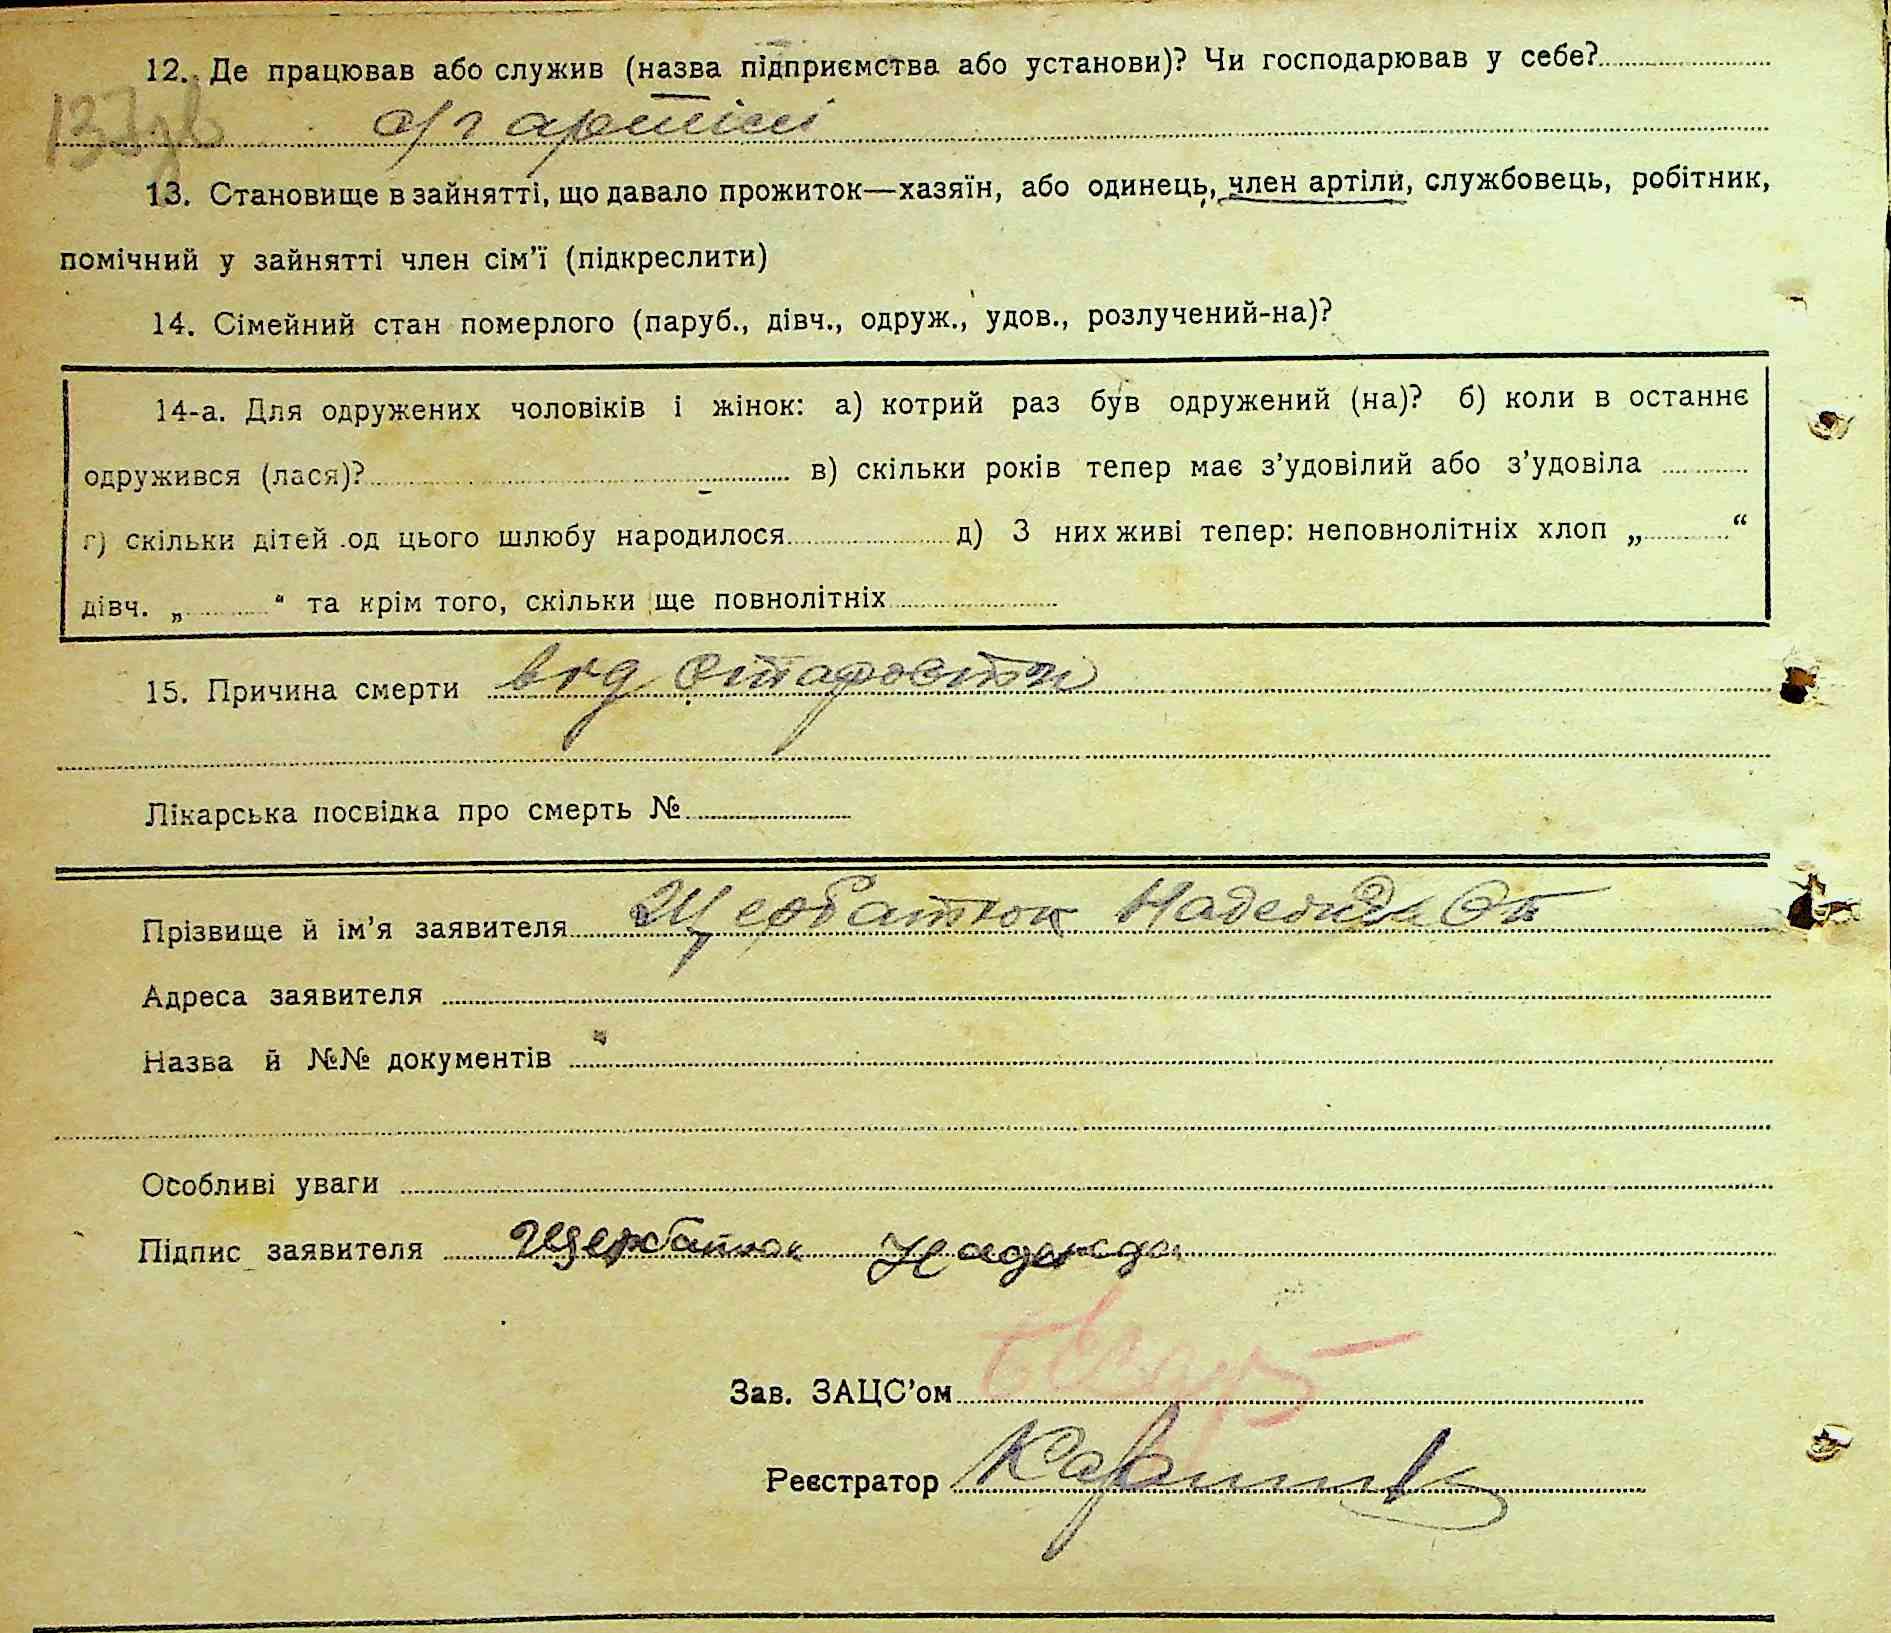 12. Де працював або служив (назва підприємства або установи)? Чи господарював у себе?
с/г артілі
13. Становище в зайнятті, що давало прожиток—хазяїн, або одинець, член артіли, службовець, робітник,
помічний у зайнятті член сім'ї (підкреслити)
14. Сімейний стан померлого (паруб., дівч., одруж., удов., розлучений-на)?
14-а. Для одружених чоловіків і жінок: а) котрий раз був одружений (на)? б) коли в останнє
одружився (лася)? в) скільки років тепер має з'удовілий або з'удовіла
г) скільки дітей од цього шлюбу народилося д) З них живі тепер: неповнолітніх хлоп „ “
дівч. „ “ та крім того, скільки ще повнолітніх
15. Причина смерти від старости
Лікарська посвідка про смерть №
Прізвище й ім'я заявителя Щербатюк Надежда
Адреса заявителя
Назва й №№ документів
Особливі уваги
Підпис заявителя Щербатюк Надежда
Зав. ЗАЦС'ом
Реєстратор